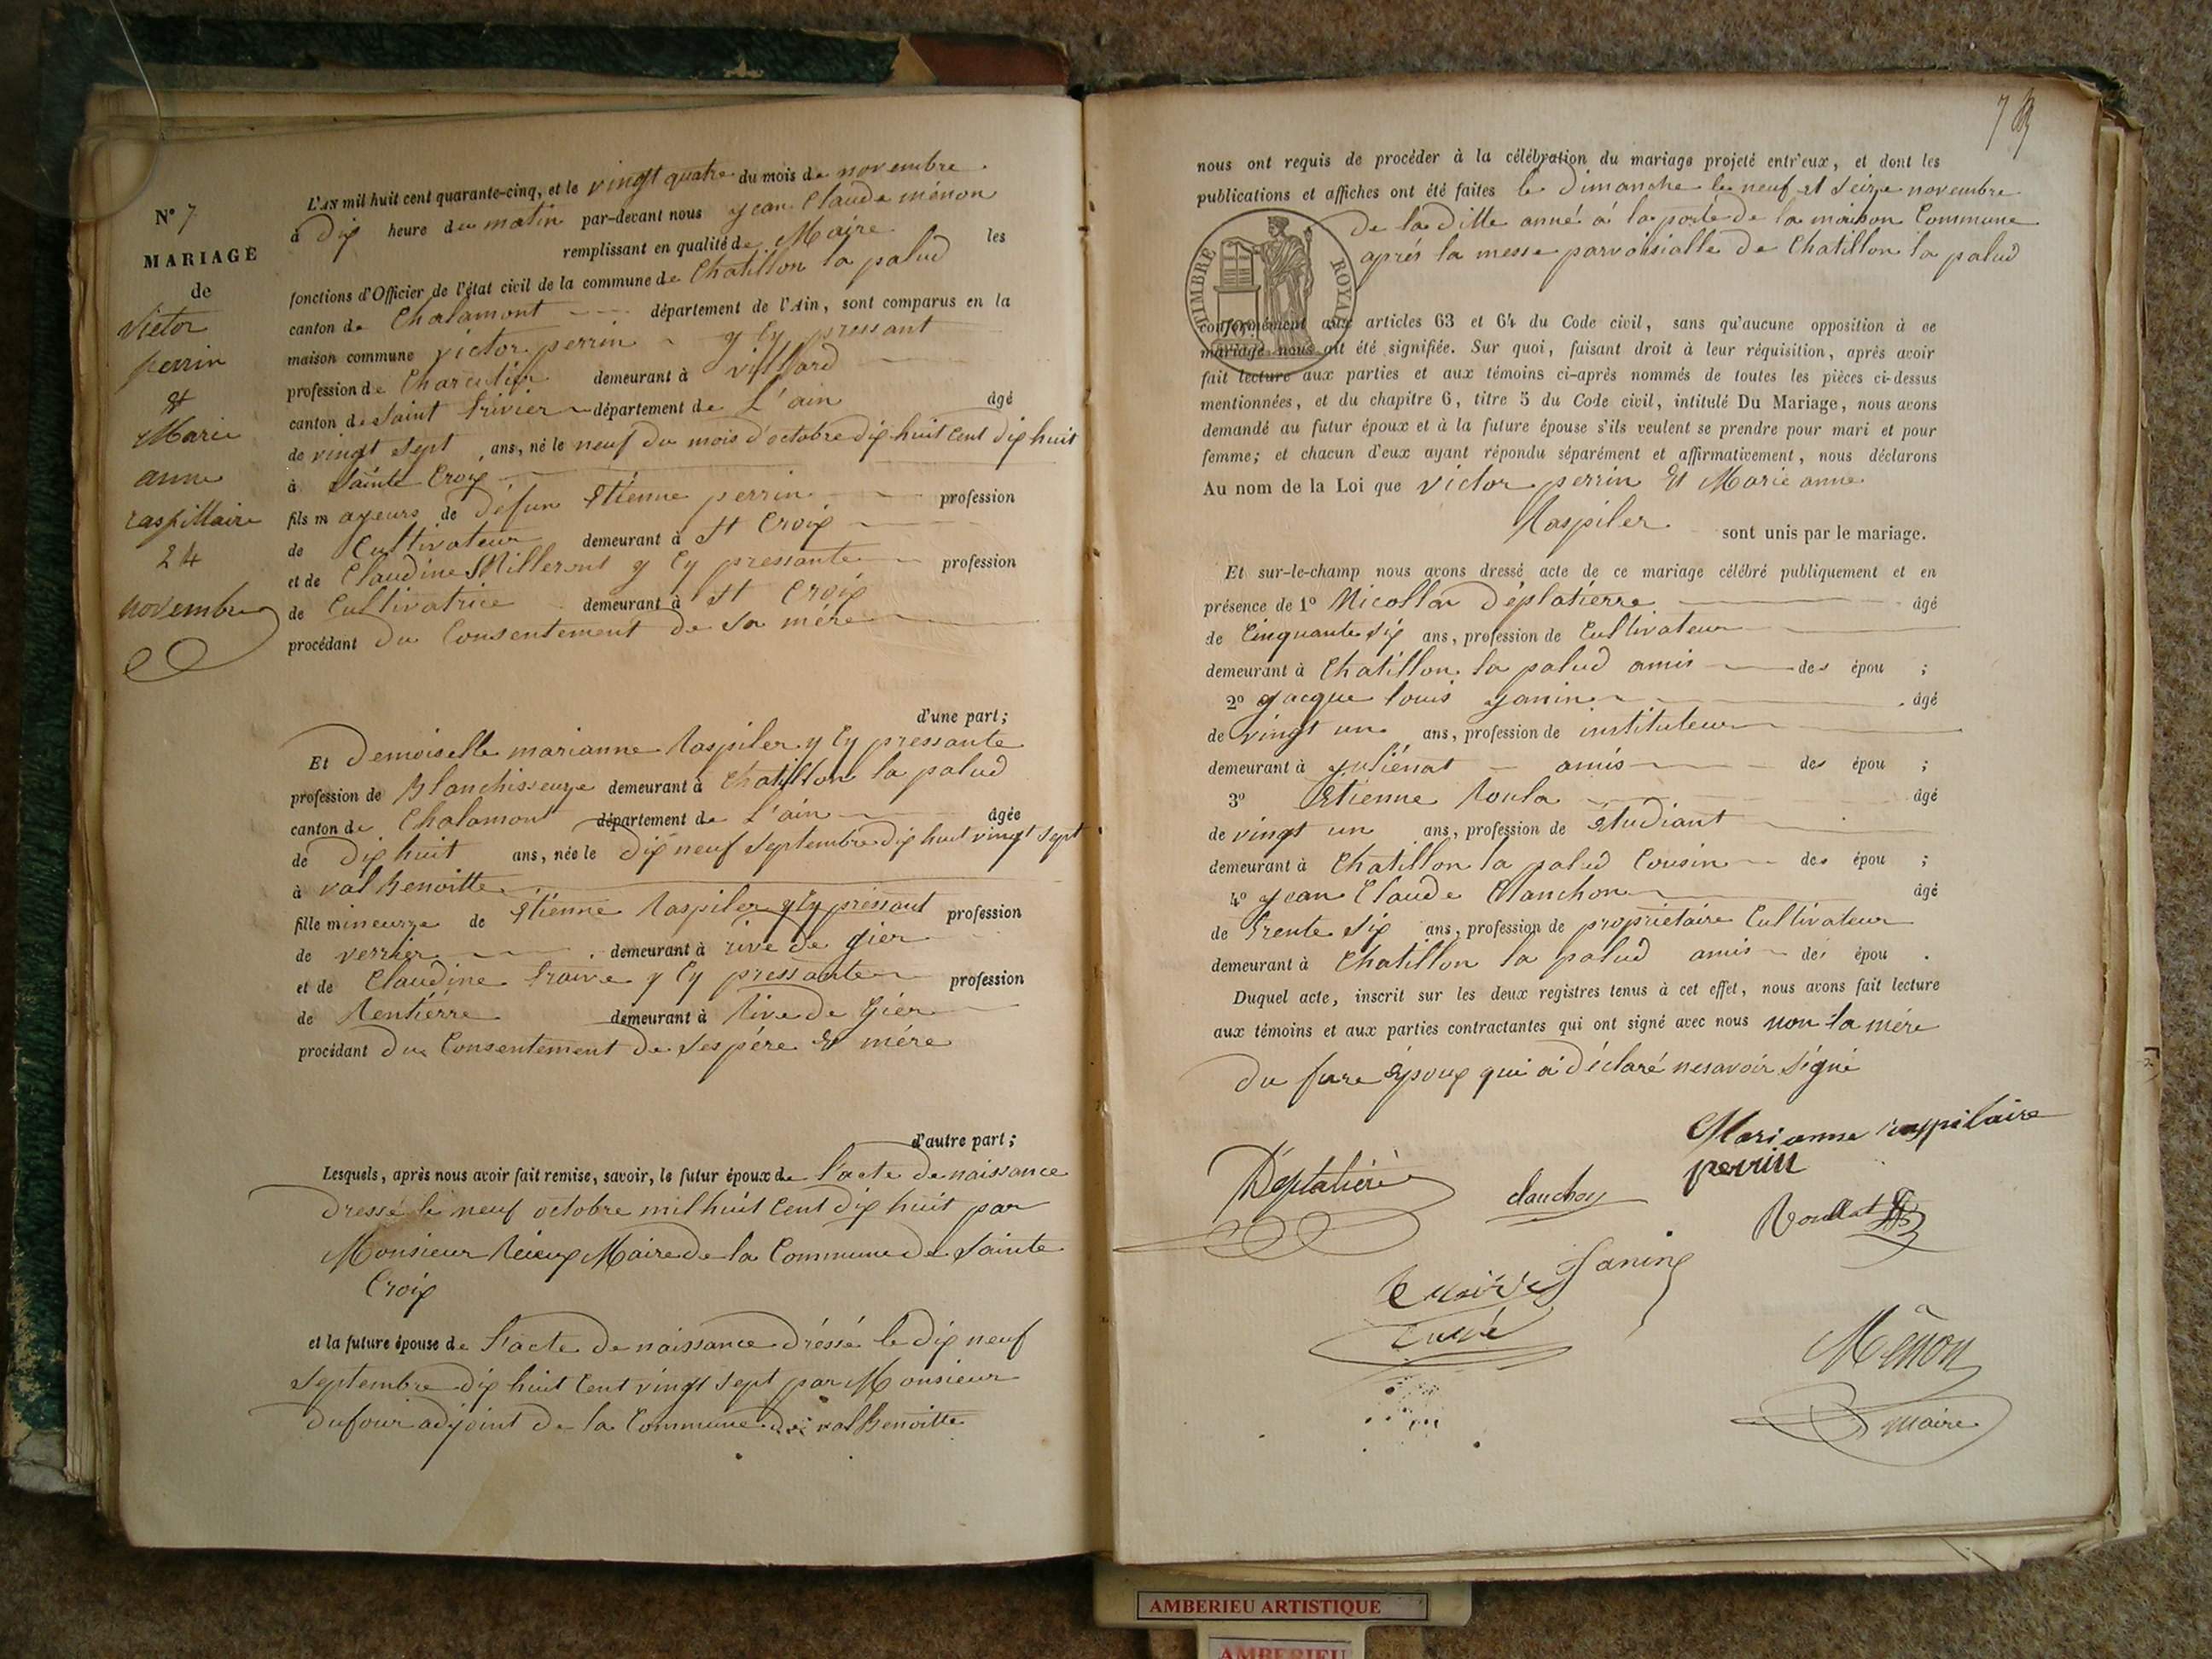 N° 7
MARIAGE
de
Victor
perrin
et
Marie
anne
raspillaire
24
novembre
L'AN mil huit cent quarante-cinq, et le vingt quatre du mois de novembre
à dix heure du matin par-devant nous jean Claude ménon
remplissant en qualité de Maire les
fonctions d'Officier de l'état civil de la commune de Chatillon la palud
canton de Chalamont département de l'Ain, sont comparus en la
maison commune victor perrin y cy pressant
profession de Charcutier demeurant à villard
canton de Saint trivier département de L'ain âgé
de vingt sept ans, né le neuf du mois d'octobre dix huit Cent dix huit
à Sainte Croix
fils mayeurs de défun Etienne perrin profession
de Cultivateur demeurant à St Croix
et de Claudine Millerent y Cy pressante profession
de Cultivatrice demeurant à St Croix
procédant du Consentement de Sa mére
d'une part;
Et Demoiselle marianne Raspiler y Cy pressante
profession de Blanchisseuze demeurant à Chatillon la palud
canton de Chalamont département de L'ain âgée
de dix huit ans, née le dix neuf Septembre dix huit vingt Sept
à val Benoitte
fille mineurze de Etienne Raspiler y Cy pressant profession
de verrier demeurant à rive de gier
et de Claudine fraive y Cy pressante profession
de Rentiérre demeurant à Rive de Gier
procédant du Consentement de Ses pére et mére
d'autre part;
Lesquels, après nous avoir fait remise, savoir, le futur époux de l'acte de naissance
dressé le neuf octobre mil huit Cent dix huit par
Monsieur Maire de la Commune de Sainte
Croix
et la future épouse de l'acte de naissance dréssé le dix neuf
Septembre dix huit Cent vingt Sept par Monsieur
dufour adjoint de la Commune de val Benoitte
nous ont requis de procéder à la célébration du mariage projeté entr'eux, et dont les
publications et affiches ont été faites le dimanche le neuf et Seize novembre
de la ditte anné à la porte de la maison Commune
aprés la messe parvoisialle de Chatillon la palud
TIMBRE ROYAL
conformément aux articles 63 et 64 du Code civil, sans qu'aucune opposition à ce
mariage nous ait été signifiée. Sur quoi, faisant droit à leur réquisition, après avoir
fait lecture aux parties et aux témoins ci-après nommés de toutes les pièces ci-dessus
mentionnées, et du chapitre 6, titre 5 du Code civil, intitulé Du Mariage, nous avons
demandé au futur époux et à la future épouse s'ils veulent se prendre pour mari et pour
femme; et chacun d'eux ayant répondu séparément et affirmativement, nous déclarons
Au nom de la Loi que victor perrin Et Marie anne
Raspiler sont unis par le mariage.
Et sur-le-champ nous avons dressé acte de ce mariage célébré publiquement et en
présence de 1° Nicollar Déplatierre âgé
de Cinquante Six ans, profession de Cultivateur
demeurant à Chatillon la palud amis des épou ;
2° jacque Louis janin âgé
de vingt un ans, profession de instituteur
demeurant à juliénat amis des épou ;
3° Etienne Roula âgé
de vingt un ans, profession de étudiant
demeurant à Chatillon la palud Cousin des épou ;
4° jean Claude Clanchon âgé
de trente Six ans, profession de propriétaire Cultivateur
demeurant à Chatillon la palud amis des épou .
Duquel acte, inscrit sur les deux registres tenus à cet effet, nous avons fait lecture
aux témoins et aux parties contractantes qui ont signé avec nous non la mére
du fure époux qui à déclaré ne savoir Signé
Marianne raspilaire
perrin
Déplatiére
clanchon
Roullat
Janin
curé
Ménon
maire
AMBERIEU ARTISTIQUE
AMBERIEU